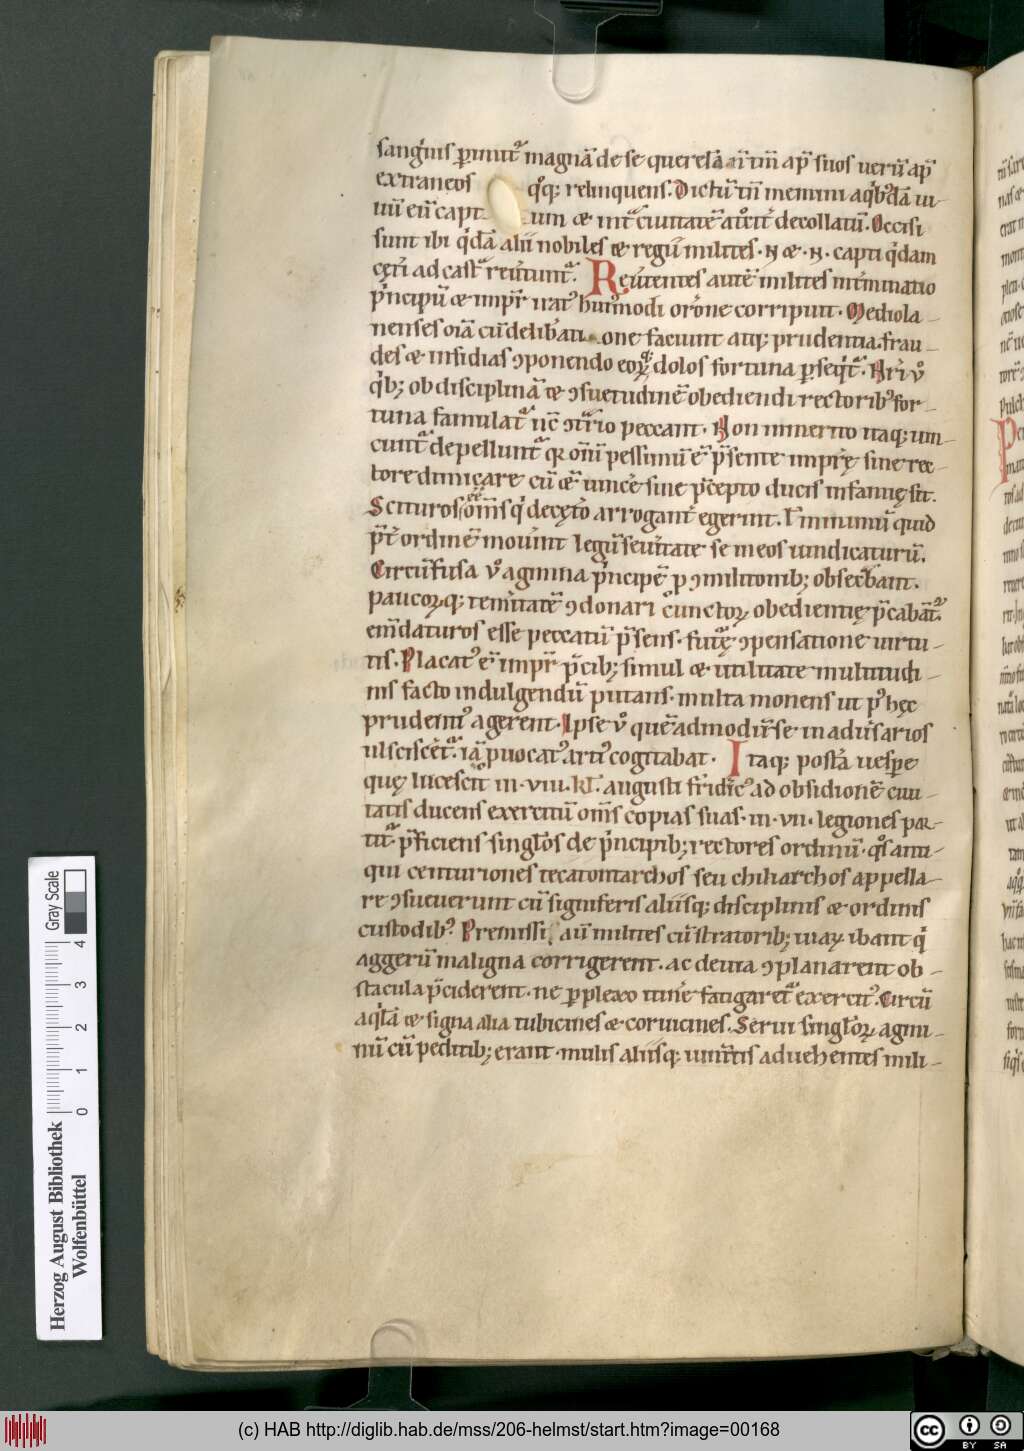 sanguīs p̄imit᷑ magnā de se querelā n̄ tm̄ ap̄ suos uerū ap̄
extraneos qͦq; relinquens. Dictū tn̄ memini a qͥbꝰdā ui-
uū eū capt um & int᷑ ciuitatē at᷑cit᷑ decollatū. Occisi
sunt ibi qͥdā alii nobiles & regū milites. N & N. capti qͥdam
cęt᷑i ad cast᷑ reūtunt᷑. Reūtentes autē milites int᷑minatio
pͥncipū & imp̄r nat᷑ huiꝰmodi or̄one corripuit. Mediola-
nenses oīa cū delibati one faciunt atq; prudentia. frau-
des & insidias ꝯponendo eoꝝq; dolos fortuna ꝑseqͥt᷑. Nr̄i v͛
qͥb; ob disciplinā & ꝯsuetudinē obediendi rectoribꝰ for-
tuna famulat᷑ nc̄ ꝯt᷑rio peccant. Non inmerito itaq; uin-
cunt᷑ & depellunt᷑ qr om̄iū pessimū ē p̄sente impr̄ę sine rec-
tore dimicare cū & uincͤe sine p̄cepto ducis infamię sit.
Scituros ēē om̄s qͥ decęt᷑o arrogant᷑ egerint. ł minimū quid
p̄t᷑ ordinē mou᷑int legū seuͥtate se in eos uindicaturū.
Circūfusa v͛ agmina pͥncipē ꝓ ꝯmilitonib; obsec̄bant.
paucoꝝq; temͥitatē ꝯdonari cūnctoꝝ obedientię p̄cabāt᷑.
em̄daturos esse peccatū p̄sens. fut᷑ę ꝯpensatione uirtu-
tis. Placatꝰ ē impr̄ p̄cib; simul & utilitate multitudi-
nis facto indulgendū putans. multa monens ut pꝰ hęc
prudentiꝰ agerent. Ipse v͛ quē admodū r̄ se in aduͥsarios
ulsciscet᷑. iā puocatꝰ artiꝰ cogitabat. Itaq; post᷑a uesꝑe
quę lucescit᷑ in. viii. kl̄. augusti fridͥicꝰ ad obsidionē ciui-
tatis ducens exercitū om̄s copias suas. in. vii. legiones par-
tit᷑. p̄ficiens singl̄os de pͥncipib; rectores ordinū. qͦs anti-
qui centuriones & catontarchos seu chiliarchos appella-
re ꝯsueuerunt cū signiferis aliisq; disciplinis & ordinis
custodibꝰ. Premissi, aū milites cū stratorib; uiaꝝ ibant qͥ
aggerū maligna corrigerent. ac deuia ꝯplanarent ob-
stacula p̄ciderent. ne ꝑplexo itinͤe fatigaret᷑ exercitꝰ. Circū
aqͥlā & signa alia tubicines & cornicines. Serui singl̄oꝝ agmi-
nū cū peditib; erant. mulis aliisq; iumͤtis aduehentes mili-
Herzog August Bibliothek
Wolfenbüttel
Gray Scale
0 1 2 3 4
(c) HAB http://diglib.hab.de/mss/206-helmst/start.htm?image=00168
cc BY SA